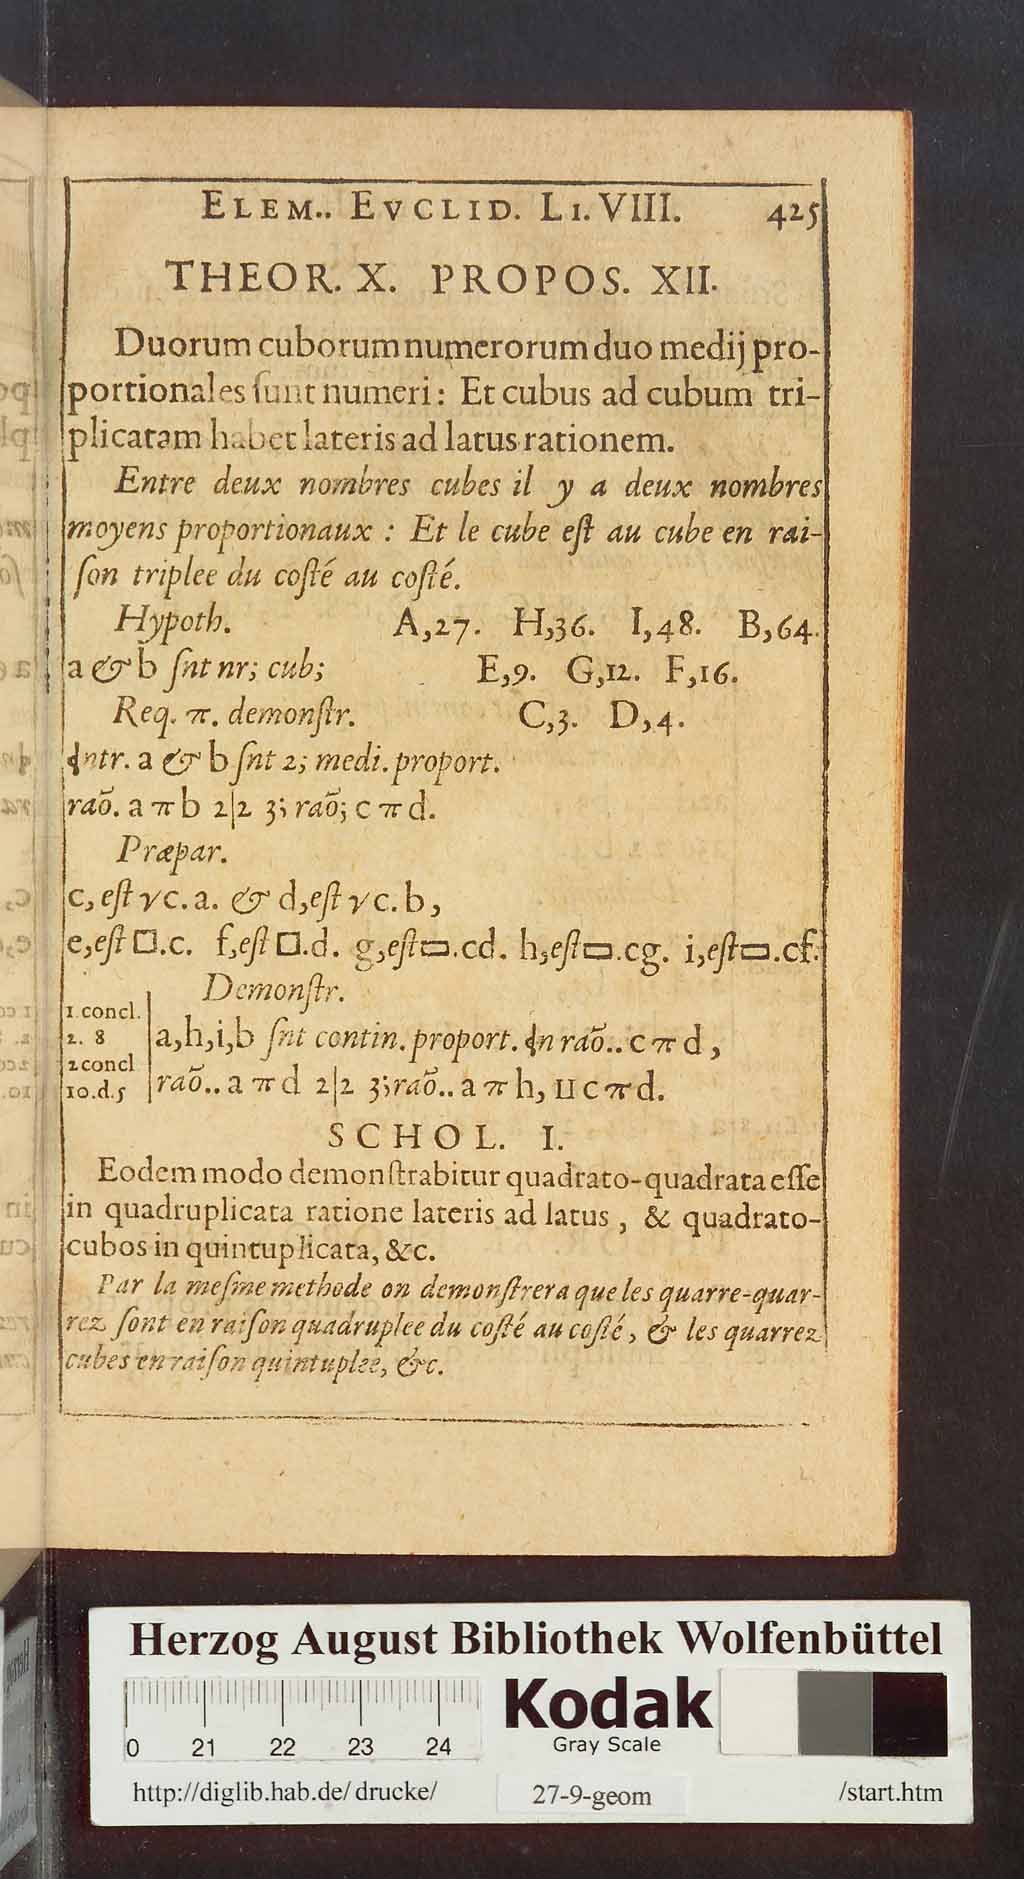 ELEM.. EVCLID. LI. VIII. 425
THEOR. X. PROPOS. XII.
Duorum cuborum numerorum duo medij pro-
portionales sunt numeri: Et cubus ad cubum tri-
plicatam habet lateris ad latus rationem.
Entre deux nombres cubes il y a deux nombres
moyens proportionaux : Et le cube eſt au cube en rai-
ſon triplee du coſté au coſté.
Hypoth. A,27. H,36. I,48. B,64.
a & b ſnt nr; cub; E,9. G,12. F,16.
Req. π. demonſtr. C,3. D,4.
ntr. a & b ſnt 2; medi. proport.
raõ. a π b 2|2 3; raõ; c π d.
Præpar.
c, eſt √c. a. & d, eſt √c. b,
e, eſt □.c. f, eſt □.d. g, eſt ▭.cd. h, eſt ▭.cg. i, eſt ▭.cf.
Demonſtr.
1.concl.
2. 8 a,h,i,b ſnt contin. proport. n raõ.. c π d,
2concl
10.d.5 raõ.. a π d 2|2 3; raõ.. a π h, II c π d.
SCHOL. I.
Eodem modo demonſtrabitur quadrato-quadrata eſſe
in quadruplicata ratione lateris ad latus, & quadrato-
cubos in quintuplicata, &c.
Par la meſme methode on demonſtrera que les quarre-quar-
rez ſont en raiſon quadruplee du coſté au coſté, & les quarrez
cubes en raiſon quintuplee, &c.
Herzog August Bibliothek Wolfenbüttel
Kodak
Gray Scale
0 21 22 23 24
http://diglib.hab.de/drucke/ 27-9-geom /start.htm